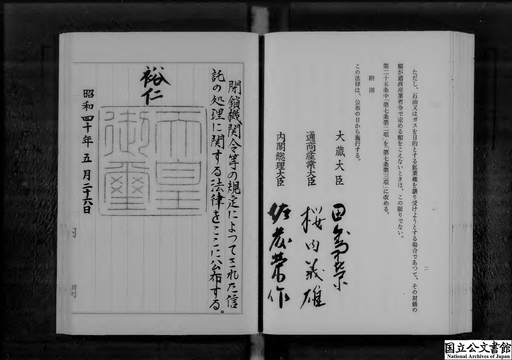 ただし、石油又はガスを目的とする鉱業権を譲り受けようとする場合であつて、その対価の
額が通商産業省令で定める額をこえないときは、この限りでない。
第二十五条中「第七条第二項」を「第七条第三項」に改める。
附則
この法律は、公布の日から施行する。
大蔵大臣 田中角栄
通商産業大臣 桜内義雄
内閣総理大臣 佐藤栄作
二
閉鎖機関令等の規定によつてされた信
託の処理に関する法律をここに公布する。
裕仁
天皇
御璽
昭和四十年五月二十六日
国立公文書館
National Archives of Japan